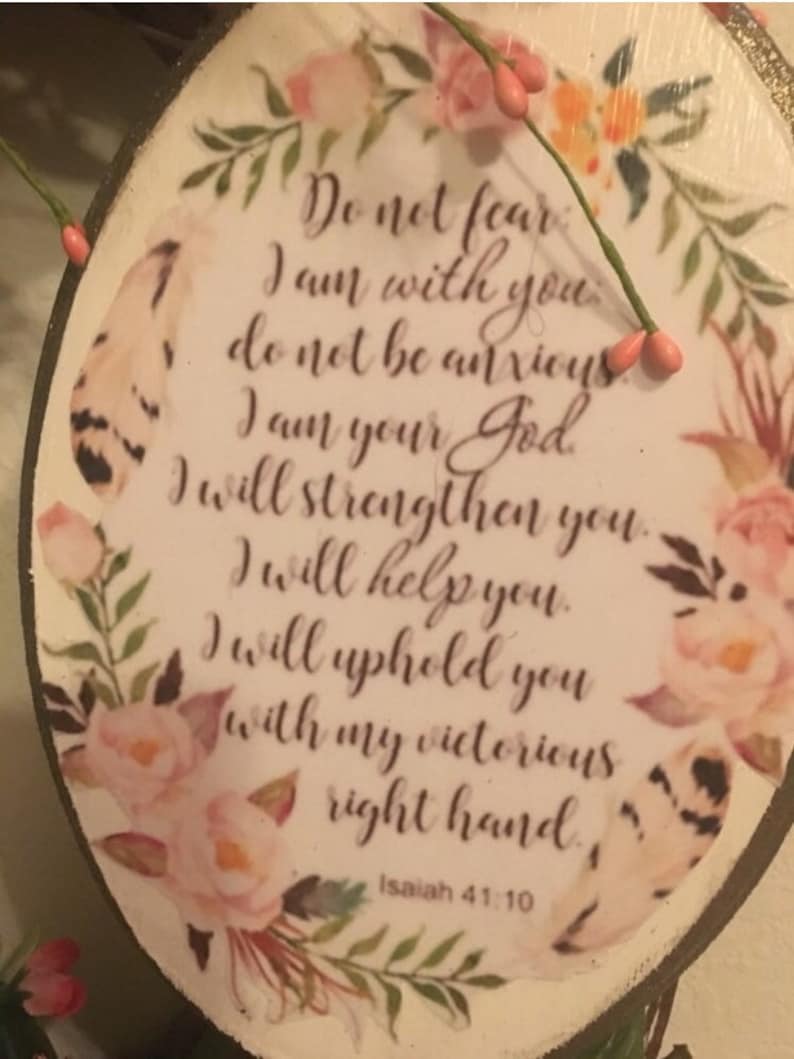 Do not fear:
I am with you:
do not be anxious.
I am your God.
I will strengthen you.
I will help you.
I will uphold you
with my victorious
right hand.
Isaiah 41:10